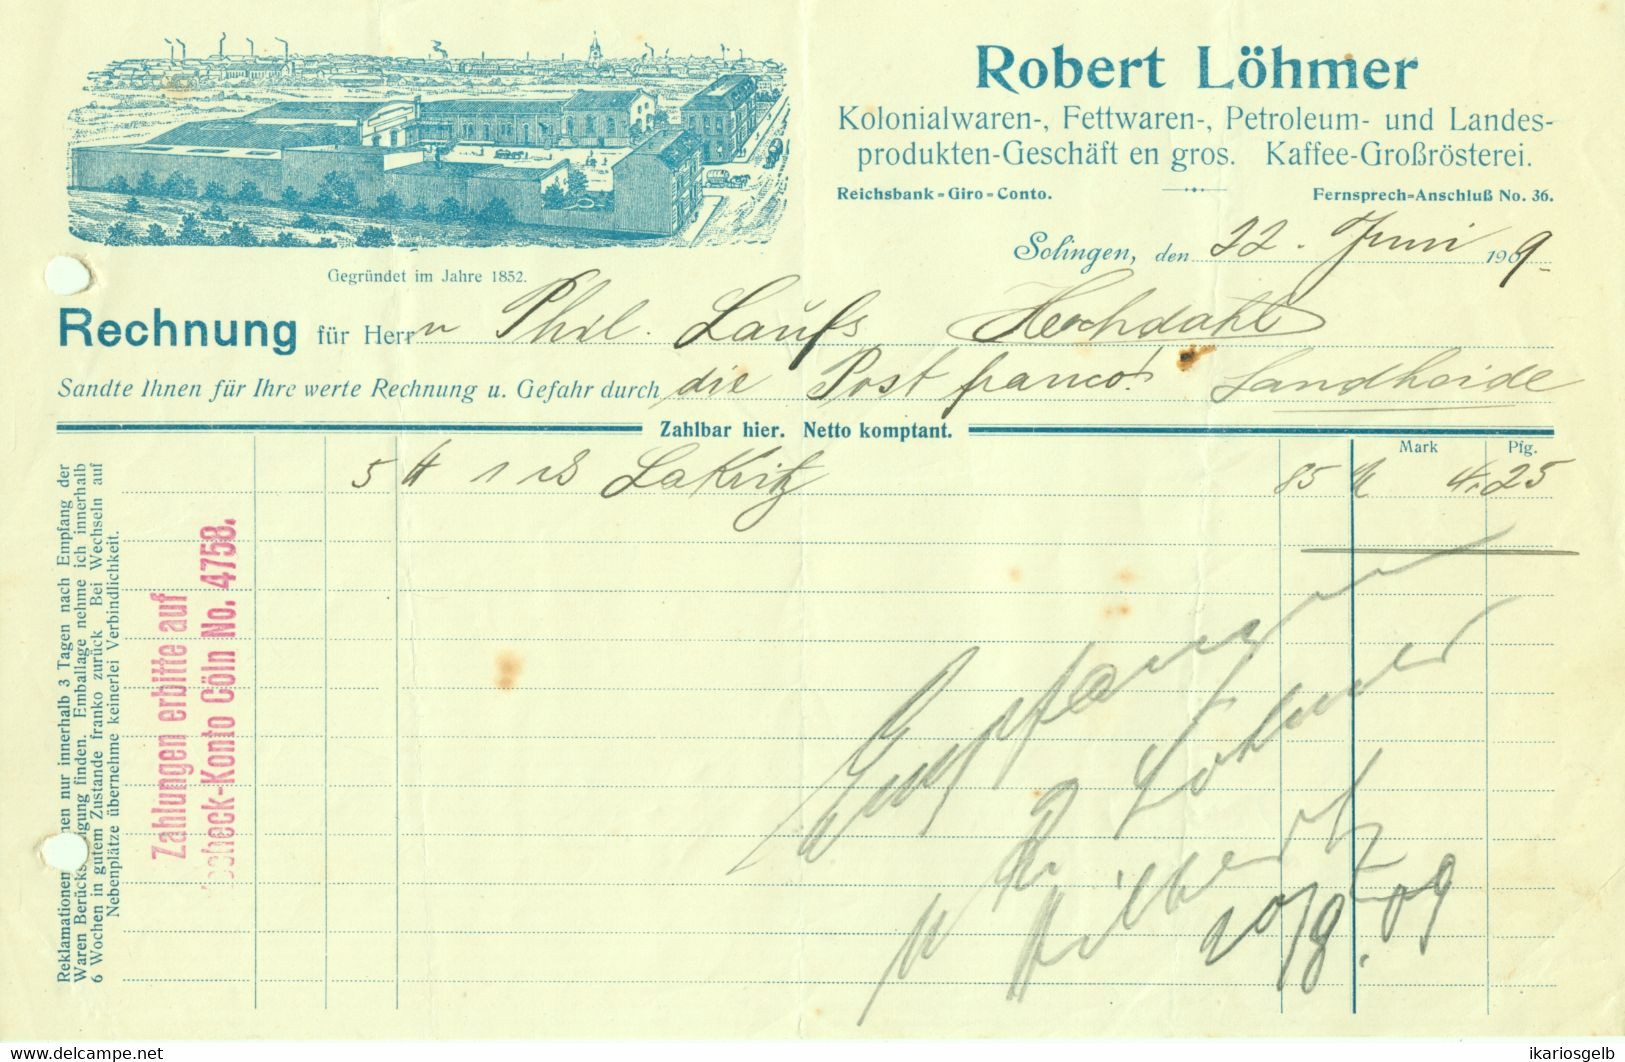 Robert Löhmer
Kolonialwaren-, Fettwaren-, Petroleum- und Landes-
produkten-Geschäft en gros. Kaffee-Großrösterei.
Reichsbank-Giro-Conto. Fernsprech-Anschluß No. 36.
Solingen, den 22. Juni 1909.
Gegründet im Jahre 1852.
Rechnung für Herrn Phil. Laufs Hochdahl
Sandte Ihnen für Ihre werte Rechnung u. Gefahr durch die Post franco! Sandheide
Zahlbar hier. Netto komptant.
Mark Pfg.
5 Lakritz 85 4,25
Reklamationen nur innerhalb 3 Tagen nach Empfang der
Waren Berücksichtigung finden. Emballage nehme ich innerhalb
6 Wochen in gutem Zustande franko zurück. Bei Wechseln auf
Nebenplätze übernehme keinerlei Verbindlichkeit.
Zahlungen erbitte auf
Scheck-Konto Cöln No. 4758.
Empfangen
R Löhmer
20/8.09
www.delcampe.net ikariosgelb